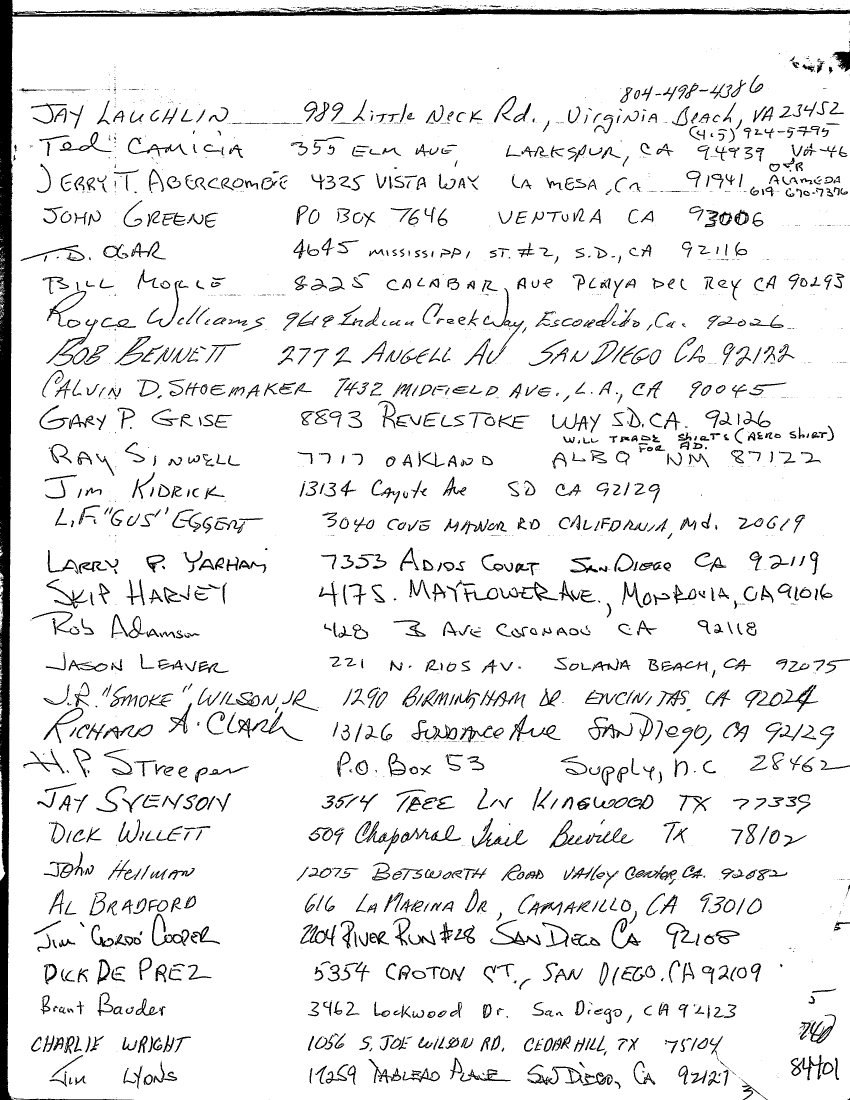 804-498-4386
JAY LAUGHLIN 989 Little Neck Rd., Virginia Beach, VA 23452
(415) 924-5795
Ted CAMICIA 355 ELM AVE, LARKSPUR, CA 94939 VA-46
OVR
JERRY T. ABERCROMBIE 4325 VISTA WAY LA MESA, Ca 91941 ALAMEDA
619 670-7376
JOHN GREENE PO BOX 7646 VENTURA CA 93006
T.D. OGAR 4645 MISSISSIPPI ST. #2, S.D., CA 92116
BILL MOGLE 8225 CALABAR AVE PLAYA Del Rey CA 90293
Royce Williams 9619 Indian Creek Way, Escondido, Ca. 92026
BOB BENNETT 2772 ANGELL AV SAN DIEGO CA 92122
CALVIN D. SHOEMAKER 7432 MIDFIELD AVE., L.A., CA 90045
GARY P. GRISE 8893 REVELSTOKE WAY S.D. CA. 92126
WILL TRADE SHIRTS (AERO SHIRT)
FOR AD.
RAY SINWELL 7717 OAKLAND ALBQ NM 87122
Jim KIDRICK 13134 Cayote Ave SD CA 92129
L.F. "GUS" EGGERT 3040 COVE MANOR RD CALIFORNIA, Md. 20619
LARRY P. YARHAM 7353 ADIOS COURT SAN DIEGO CA 92119
SKIP HARVEY 417 S. MAYFLOWER AVE., MONROVIA, CA 91016
Rob Adamson 428 B AVE CORONADO CA 92118
JASON LEAVER 221 N. RIOS AV. SOLANA BEACH, CA 92075
J.R. "SMOKE", WILSON, JR 1290 BIRMINGHAM DR. ENCINITAS, CA 92024
RICHARD A. CLARK 13126 SUNDANCE Ave SAN DIego, CA 92129
H.P. Streeper P.O. Box 53 Supply, n.c 28462
JAY SVENSON 3514 TREE LN KINGWOOD TX 77339
DICK WILLETT 509 Chaparral Trail Beeville TX 78102
John Hellman 12075 BETSWORTH ROAD VAlley Center, CA. 92082
AL BRADFORD 616 LA MARINA DR, CAMARILLO, CA 93010
Jim 'GORDO' COOPER 2204 RIVER RUN #28 SAN DIEGO CA 92108
5
DICK DE PREZ 5354 CROTON CT., SAN DIEGO. CA 92109
5
Brant Bauder 3462 Lockwood Dr. San Diego, CA 92123
CHARLIE WRIGHT 1056 S. JOE WILSON RD. CEDAR HILL, TX 75104
Jim LYONS 17259 TABLERO PLACE SAN DIEGO, CA 92127 84401
3